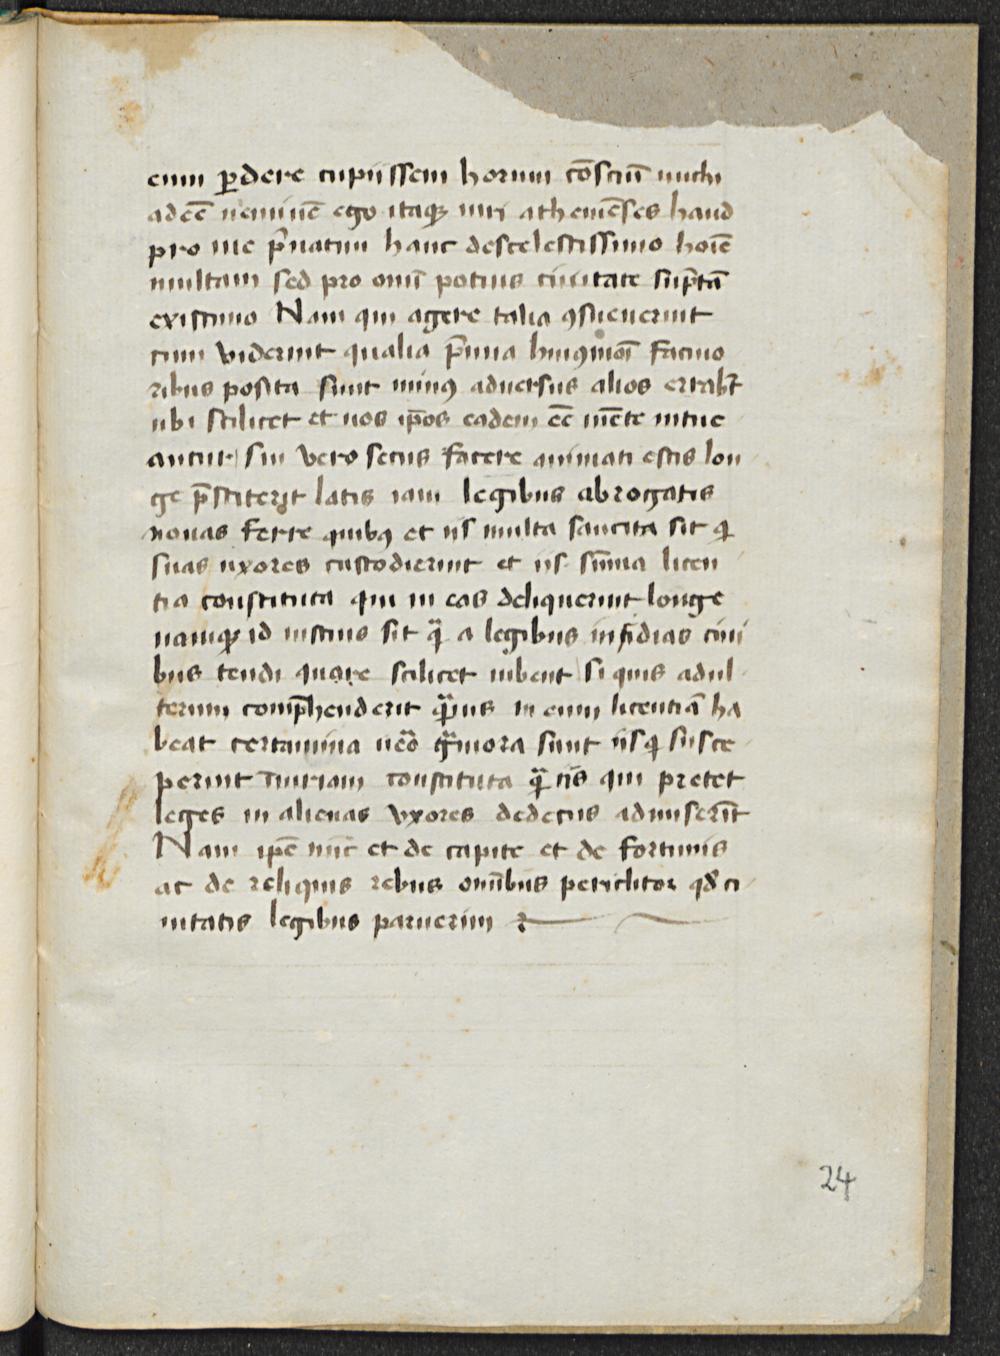 eum ꝑdere cupiissem horum cōsciū michi
adeē neminē ego itaqꝫ uiri athenienses haud
pro me p̄uatim hanc descelestissimo hoīe
multam sed pro omī potius ciuitate sūptā
existimo Nam qui agere talia ꝯsueuerunt
cum viderint qualia p̄mia huiꝰmōi facino
ribus posita sunt minꝰ aduersus alios errabūt
ubi scilicet et uos ip̄os eadem eē mēte intue
antur sin vero secus facere animati estis lon
ge p̄stiterit latis iam legibus abrogatis
nouas ferre quibꝰ et iis multa sancita sit qi
suas uxores custodierint et iis sūma licen
tia constituta qui in eas deliquerint longe
namqꝫ id iustius sit qᷓ a legibus insidias ciui
bus tendi quare scilicet iubent si quis adul
terum comp̄henderit qᷓuis in eum licentiā ha
beat certamina uēo gᷓuiora sunt iis qi susce
perint iniuriam constituta qᷓ iis qui preter
leges in alienas vxores dedecus admiserīt
Nam ip̄e nūc et de capite et de fortunis
ac de reliquis rebus omībus periclitor qd̕ ci
uitatis legibus paruerim
24